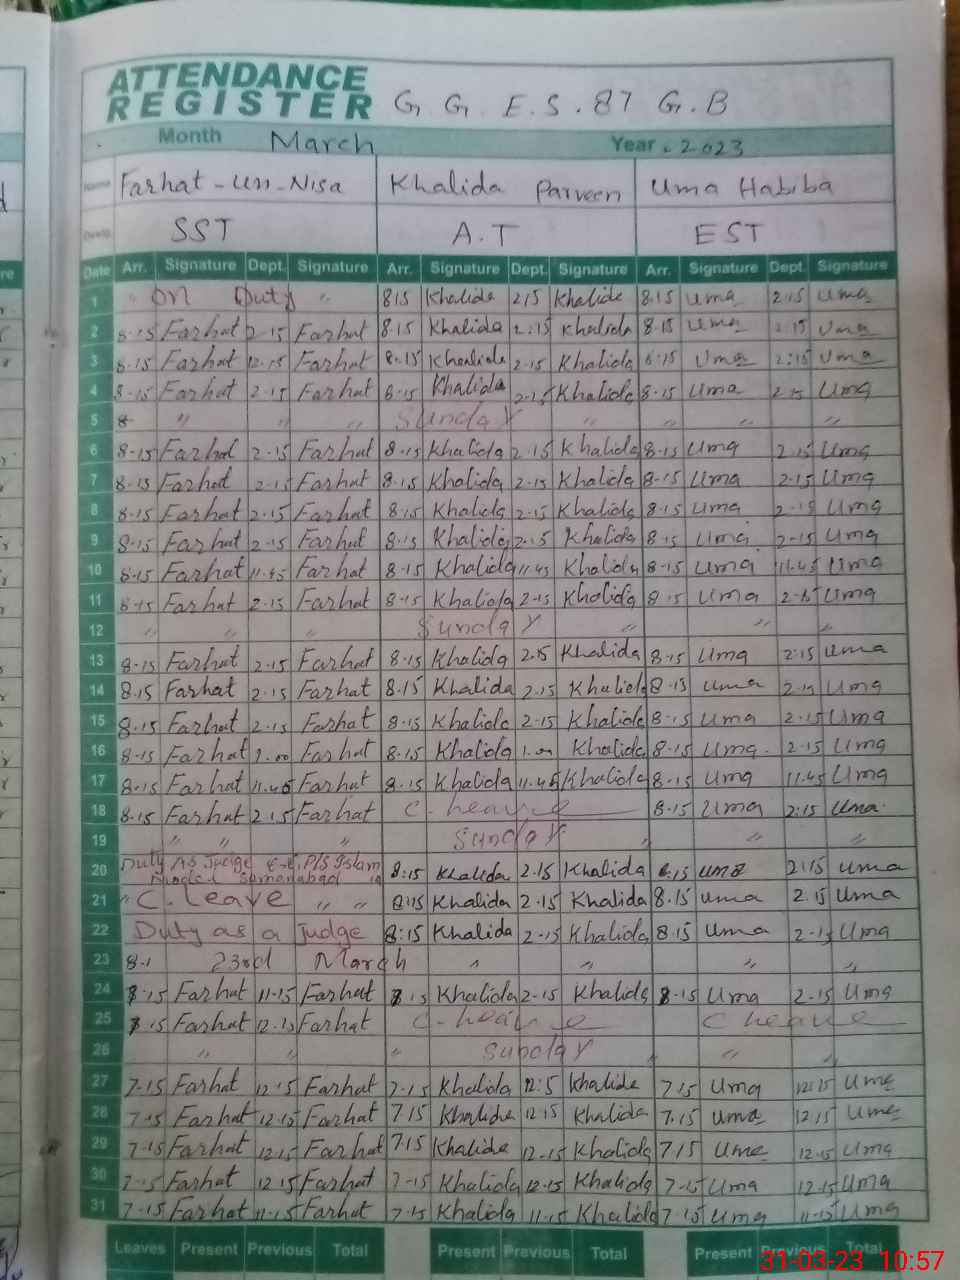 ATTENDANCE
REGISTER G G. E. S. 87 G. B
Month March Year 2023
Name Farhat-un-Nisa Khalida Parveen Uma Habiba
SST A.T EST
Date Arr. Signature Dept. Signature Arr. Signature Dept. Signature Arr. Signature Dept. Signature
1 " On Duty " 8.15 Khalida 2.15 Khalida 8.15 Uma 2.15 Uma
2 8-15 Farhat 2-15 Farhat 8.15 Khalida 2:15 Khalida 8-15 Uma 2.15 Uma
3 8.15 Farhat 12.15 Farhat 8.-15 Khalida 2-15 Khalida 8-15 Uma 2:15 Uma
4 8-15 Farhat 2-15 Farhat 8-15 Khalida 2-15 Khalida 8-15 Uma 2.15 Uma
5 8- " " " Sunday " " " "
6 8-15 Farhat 2-15 Farhat 8-15 Khalida 2.15 Khalida 8-15 Uma 2.15 Uma
7 8-15 Farhat 2-15 Farhat 8-15 Khalida 2-15 Khalida 8-15 Uma 2-15 Uma
8 8-15 Farhat 2-15 Farhat 8-15 Khalida 2-15 Khalida 8-15 Uma 2-15 Uma
9 8-15 Farhat 2-15 Farhat 8-15 Khalida 2-15 Khalida 8-15 Uma 2-15 Uma
10 8-15 Farhat 11.45 Farhat 8-15 Khalida 11.45 Khalida 8-15 Uma 11.45 Uma
11 8-15 Farhat 2-15 Farhat 8-15 Khalida 2-15 Khalida 8-15 Uma 2-15 Uma
12 " " " Sunday " " "
13 8-15 Farhat 2.15 Farhat 8-15 Khalida 2.15 Khalida 8-15 Uma 2.15 Uma
14 8.15 Farhat 2.15 Farhat 8-15 Khalida 2.15 Khalida 8-15 Uma 2-15 Uma
15 8-15 Farhat 2-15 Farhat 8-15 Khalida 2-15 Khalida 8-15 Uma 2-15 Uma
16 8-15 Farhat 1.00 Farhat 8-15 Khalida 1.00 Khalida 8-15 Uma 2-15 Uma
17 8-15 Farhat 11.45 Farhat 8-15 Khalida 11.45 Khalida 8-15 Uma 11.45 Uma
18 8-15 Farhat 2.15 Farhat C. Leave 8-15 Uma 2.15 Uma
19 " " " Sunday " " "
20 Duty As Judge P/S Islam 8:15 Khalida 2.15 Khalida 8.15 Uma 2:15 Uma
Model Samanabad
21 " C. Leave " " 8:15 Khalida 2-15 Khalida 8.15 Uma 2.15 Uma
22 Duty as a Judge 8:15 Khalida 2-15 Khalida 8.15 Uma 2-15 Uma
23 8-1 23rd March " " " "
24 8-15 Farhat 11-15 Farhat 8-15 Khalida 2-15 Khalida 8-15 Uma 2-15 Uma
25 8-15 Farhat 12.15 Farhat C. Leave C Leave
26 " " " Sunday " " "
27 7-15 Farhat 12.15 Farhat 7-15 Khalida 12:5 Khalida 7.15 Uma 12:15 Uma
28 7-15 Farhat 12.15 Farhat 7.15 Khalida 12.15 Khalida 7.15 Uma 12.15 Uma
29 7-15 Farhat 12.15 Farhat 7.15 Khalida 12-15 Khalida 7.15 Uma 12-15 Uma
30 7-15 Farhat 12.15 Farhat 7-15 Khalida 12-15 Khalida 7-15 Uma 12.15 Uma
31 7-15 Farhat 11-15 Farhat 7-15 Khalida 11-15 Khalida 7-15 Uma 11-15 Uma
Leaves Present Previous Total Present Previous Total Present Previous Total
31-03-23 10:57